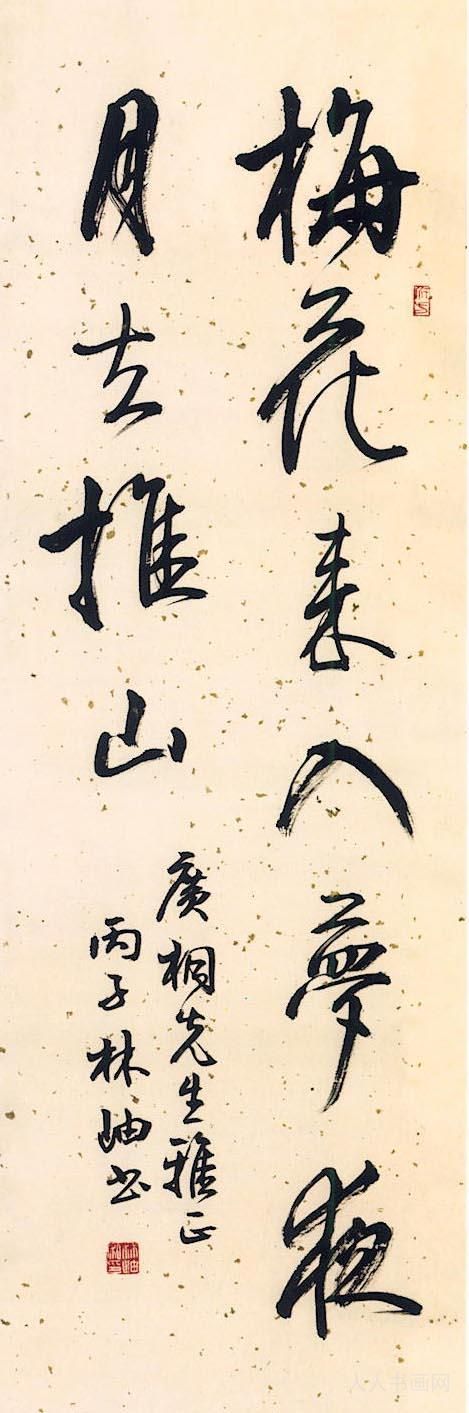 梅花来入夢夜
月去推山
廣桐先生雅正
丙子林岫书
人人书画网